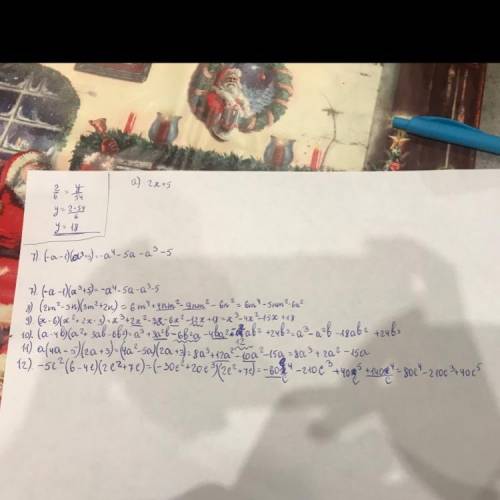 2/6 = y/54
y = 2·54/6
y = 18
a) 2x+5
7). (-a-1)(a³+5)=-a⁴-5a-a³-5
7). (-a-1)(a³+5)=-a⁴-5a-a³-5
8) (2m²-3n)(3m²+2n) = 6m⁴+4nm²-9nm²-6n²=6m⁴-5nm²-6n²
9) (x-6)(x²+2x-3)=x³+2x²-3x-6x²-12x+18=x³-4x²-15x+18
10). (a-4b)(a²+3ab-6b²)=a³+3a²b-6b²a-4ba²-12ab²+24b³=a³-a²b-18ab²+24b³
11) a(4a-5)(2a+3)=(4a²-5a)(2a+3)=8a³+12a²-10a²-15a=8a³+2a²-15a
12) -5c²(6-4c)(2c²+7c)=(-30c²+20c³)(2c²+7c)=-60c⁴-210c³+40c⁵+140c⁴=80c⁴-210c³+40c⁵